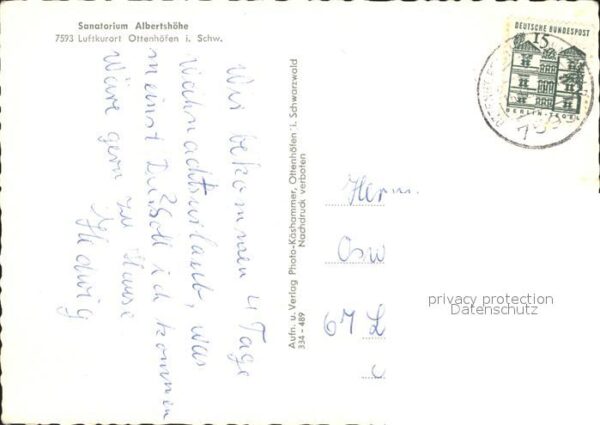 Sanatorium Albertshöhe
7593 Luftkurort Ottenhöfen i. Schw.
DEUTSCHE BUNDESPOST
15
BERLIN-TEGEL
7593
Wir bekommen 4 Tage
Weihnachtsurlaub, was
meinst Du soll ich kommen
Wäre gern zu Hause
Hedwig
Aufn. u. Verlag Photo-Käshammer, Ottenhöfen i. Schwarzwald
Nachdruck verboten
334 - 489
Herrn
Osw
67 L
privacy protection
Datenschutz